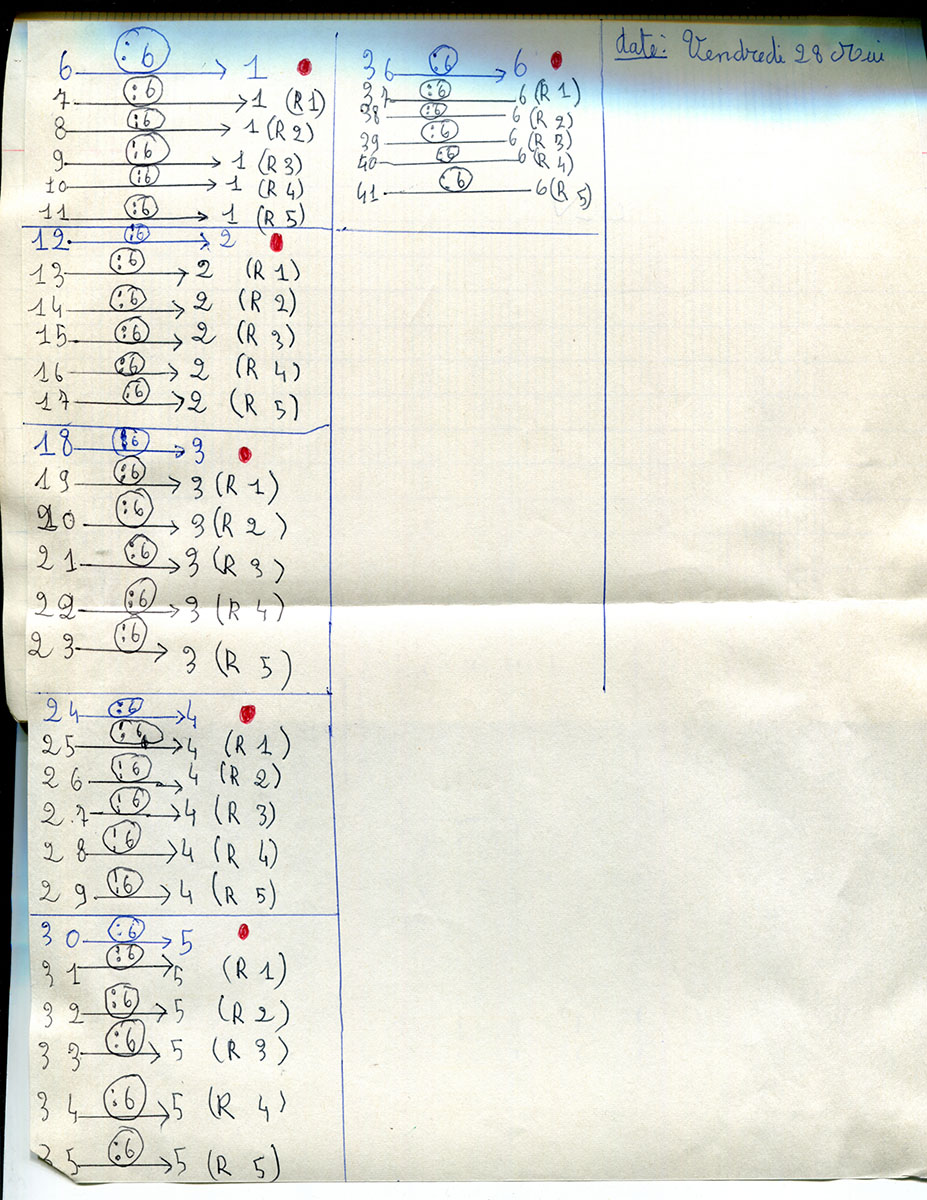 6 :6 → 1
7 :6 → 1 (R 1)
8 :6 → 1 (R 2)
9 :6 → 1 (R 3)
10 :6 → 1 (R 4)
11 :6 → 1 (R 5)
12 :6 → 2
13 :6 → 2 (R 1)
14 :6 → 2 (R 2)
15 :6 → 2 (R 3)
16 :6 → 2 (R 4)
17 :6 → 2 (R 5)
18 :6 → 3
19 :6 → 3 (R 1)
20 :6 → 3 (R 2)
21 :6 → 3 (R 3)
22 :6 → 3 (R 4)
23 :6 → 3 (R 5)
24 :6 → 4
25 :6 → 4 (R 1)
26 :6 → 4 (R 2)
27 :6 → 4 (R 3)
28 :6 → 4 (R 4)
29 :6 → 4 (R 5)
30 :6 → 5
31 :6 → 5 (R 1)
32 :6 → 5 (R 2)
33 :6 → 5 (R 3)
34 :6 → 5 (R 4)
35 :6 → 5 (R 5)
36 :6 → 6
37 :6 6 (R 1)
38 :6 6 (R 2)
39 :6 6 (R 3)
40 :6 6 (R 4)
41 :6 6 (R 5)
date: Vendredi 28 Mai